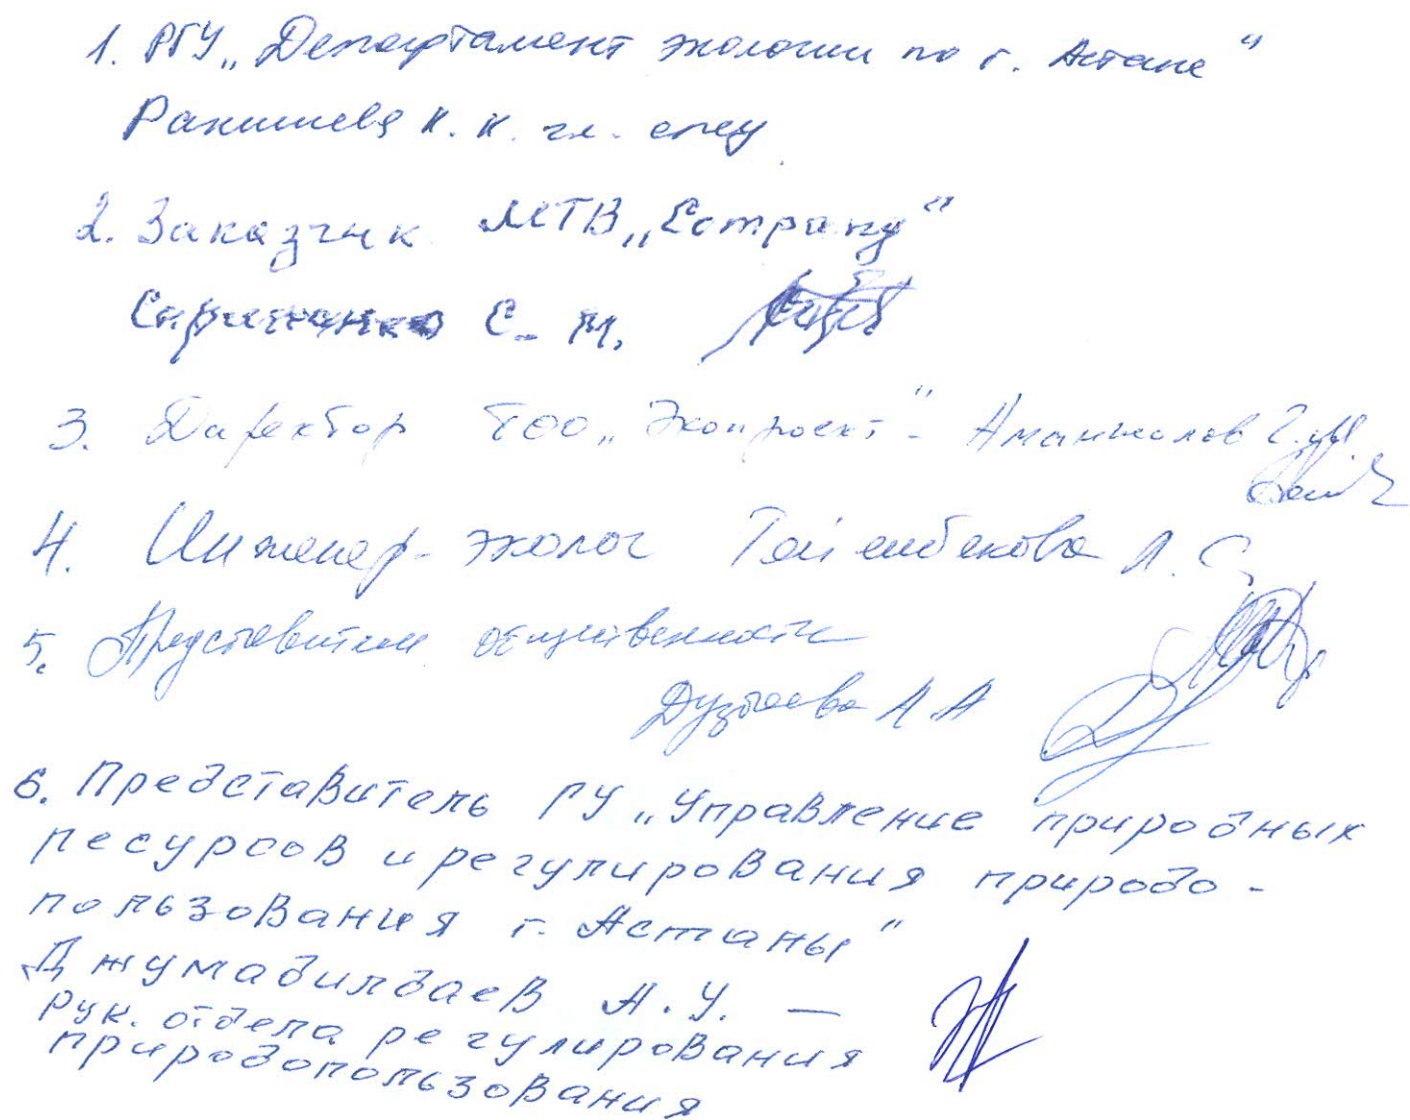 1. РГУ „Департамент экологии по г. Астане"
Ракишева К. К. гл. спец
2. Заказчик МТВ „
С. М.
3. Директор ТОО „Экопроект" - Аманжолов
4. Инженер-эколог Тойшибекова Л. С.
5. Представители общественности
Дузбаева А. А
6. Представитель ГУ „Управление природных
ресурсов и регулирования природо-
пользования г. Астаны"
Джумадилдаев А. У. —
Рук. отдела регулирования
природопользования